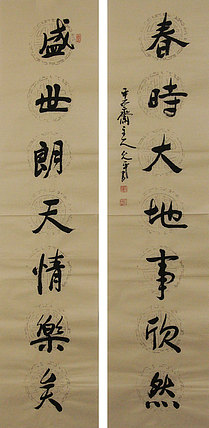 春時大地事欣然
齋主人
盛世朗天情樂矣